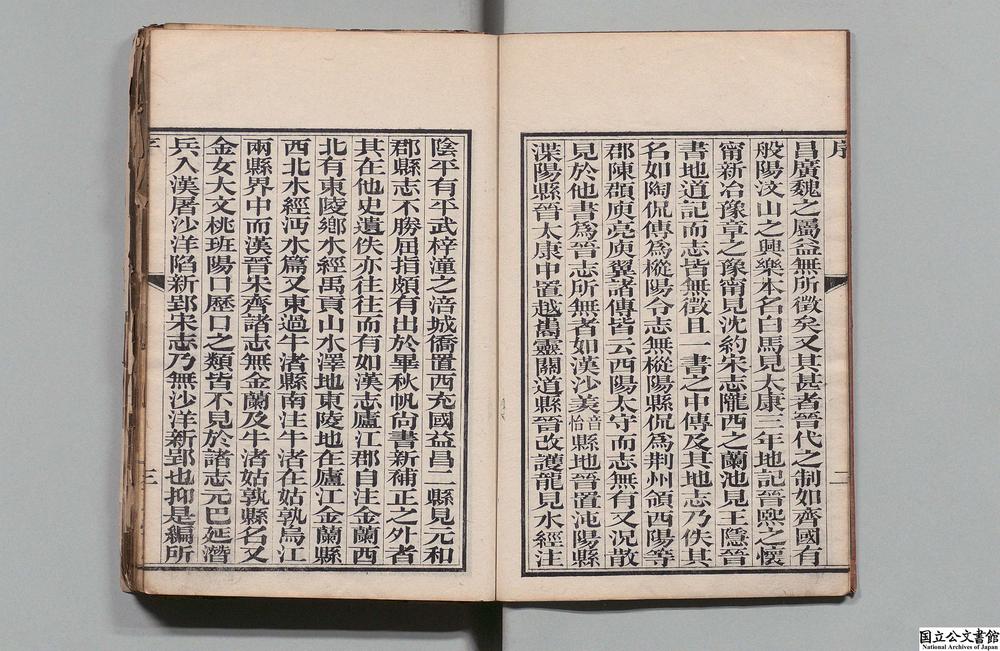 序
二
昌廣魏之屬益無所徵矣又其甚者晉代之制如齊國有
般陽汶山之興樂本名白馬見太康三年地記晉熙之懷
甯新冶豫章之豫甯見沈約宋志隴西之蘭池見王隱晉
書地道記而志皆無徵且一書之中傳及其地志乃佚其
名如陶侃傳爲樅陽令志無樅陽縣侃爲荆州領西陽等
郡陳頵庾亮庾翼諸傳皆云西陽太守而志無有又況散
見於他書爲晉志所無者如漢沙羡音怡縣地晉置沌陽縣
渫陽縣晉太康中置越巂靈關道縣晉改護龍見水經注
陰平有平武梓潼之涪城僑置西充國益昌二縣見元和
郡縣志不勝屈指頗有出於畢秋帆尚書新補正之外者
其在他史遺佚亦往往而有如漢志廬江郡自注金蘭西
北有東陵鄉水經禹貢山水澤地東陵地在廬江金蘭縣
西北水經沔水篇又東過牛渚縣南注牛渚在姑孰烏江
兩縣界中而漢晉宋齊諸志無金蘭及牛渚姑孰縣名又
金女大文桃班陽口歷口之類皆不見於諸志元巴延潛
兵入漢屠沙洋陷新郢宋志乃無沙洋新郢也抑是編所
序
三
国立公文書館
National Archives of Japan